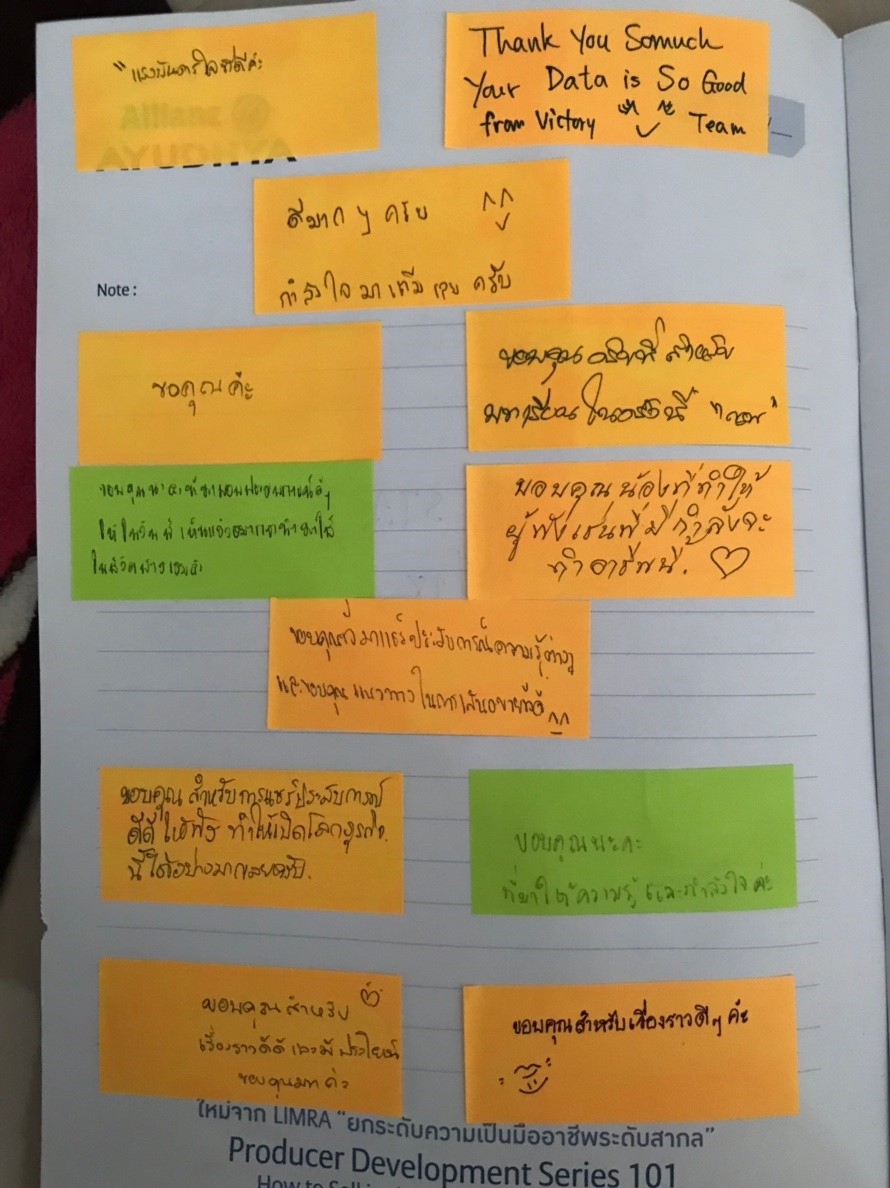 "แรงบันดาลใจที่ดีค่ะ
Allianz
AYUDHYA
Thank You Somuch
Your Data is So Good
from Victory Team
ดีมาก ๆ ครับ
กำลังใจมาเต็มเลย ครับ
Note :
ขอคุณค่ะ
ขอบคุณ
ขอบคุณน้องที่ทำให้
ผู้ฟังเช่นพี่มีกำลังจะ
ทำอาชีพนี้.
ขอบคุณ
ให้ในวันนี้
ขอบคุณที่มาแชร์ประสบการณ์ความรู้ต่างๆ
และขอบคุณแนวทางในการเสนอขายที่ดี
ขอบคุณ สำหรับการแชร์ประสบการณ์
ดีดี ให้ฟัง ทำให้เปิดโลกธุรกิจ
นี้ได้อย่างมากเลยครับ.
ขอบคุณนะคะ
ที่มาให้ความรู้ และกำลังใจค่ะ
ขอบคุณสำหรับ
เรื่องราวดีดี และมีประโยชน์
ขอบคุณมากค่ะ
ขอบคุณสำหรับเรื่องราวดีๆ ค่ะ
ใหม่จาก LIMRA "ยกระดับความเป็นมืออาชีพระดับสากล"
Producer Development Series 101
How to Sell